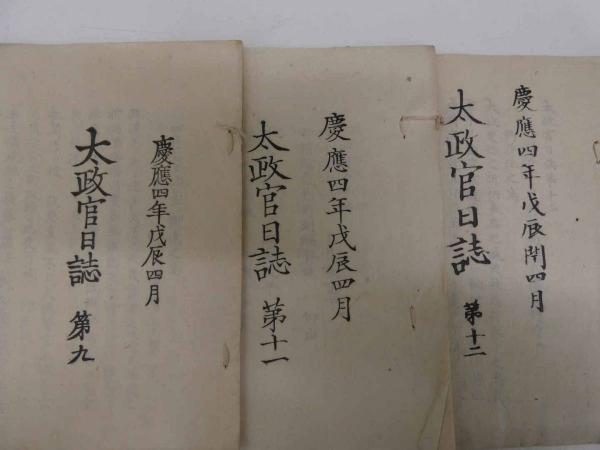 慶應四年戊辰閏四月
太政官日誌 第十二
慶應四年戊辰四月
太政官日誌 第十一
慶應四年戊辰四月
太政官日誌 第九